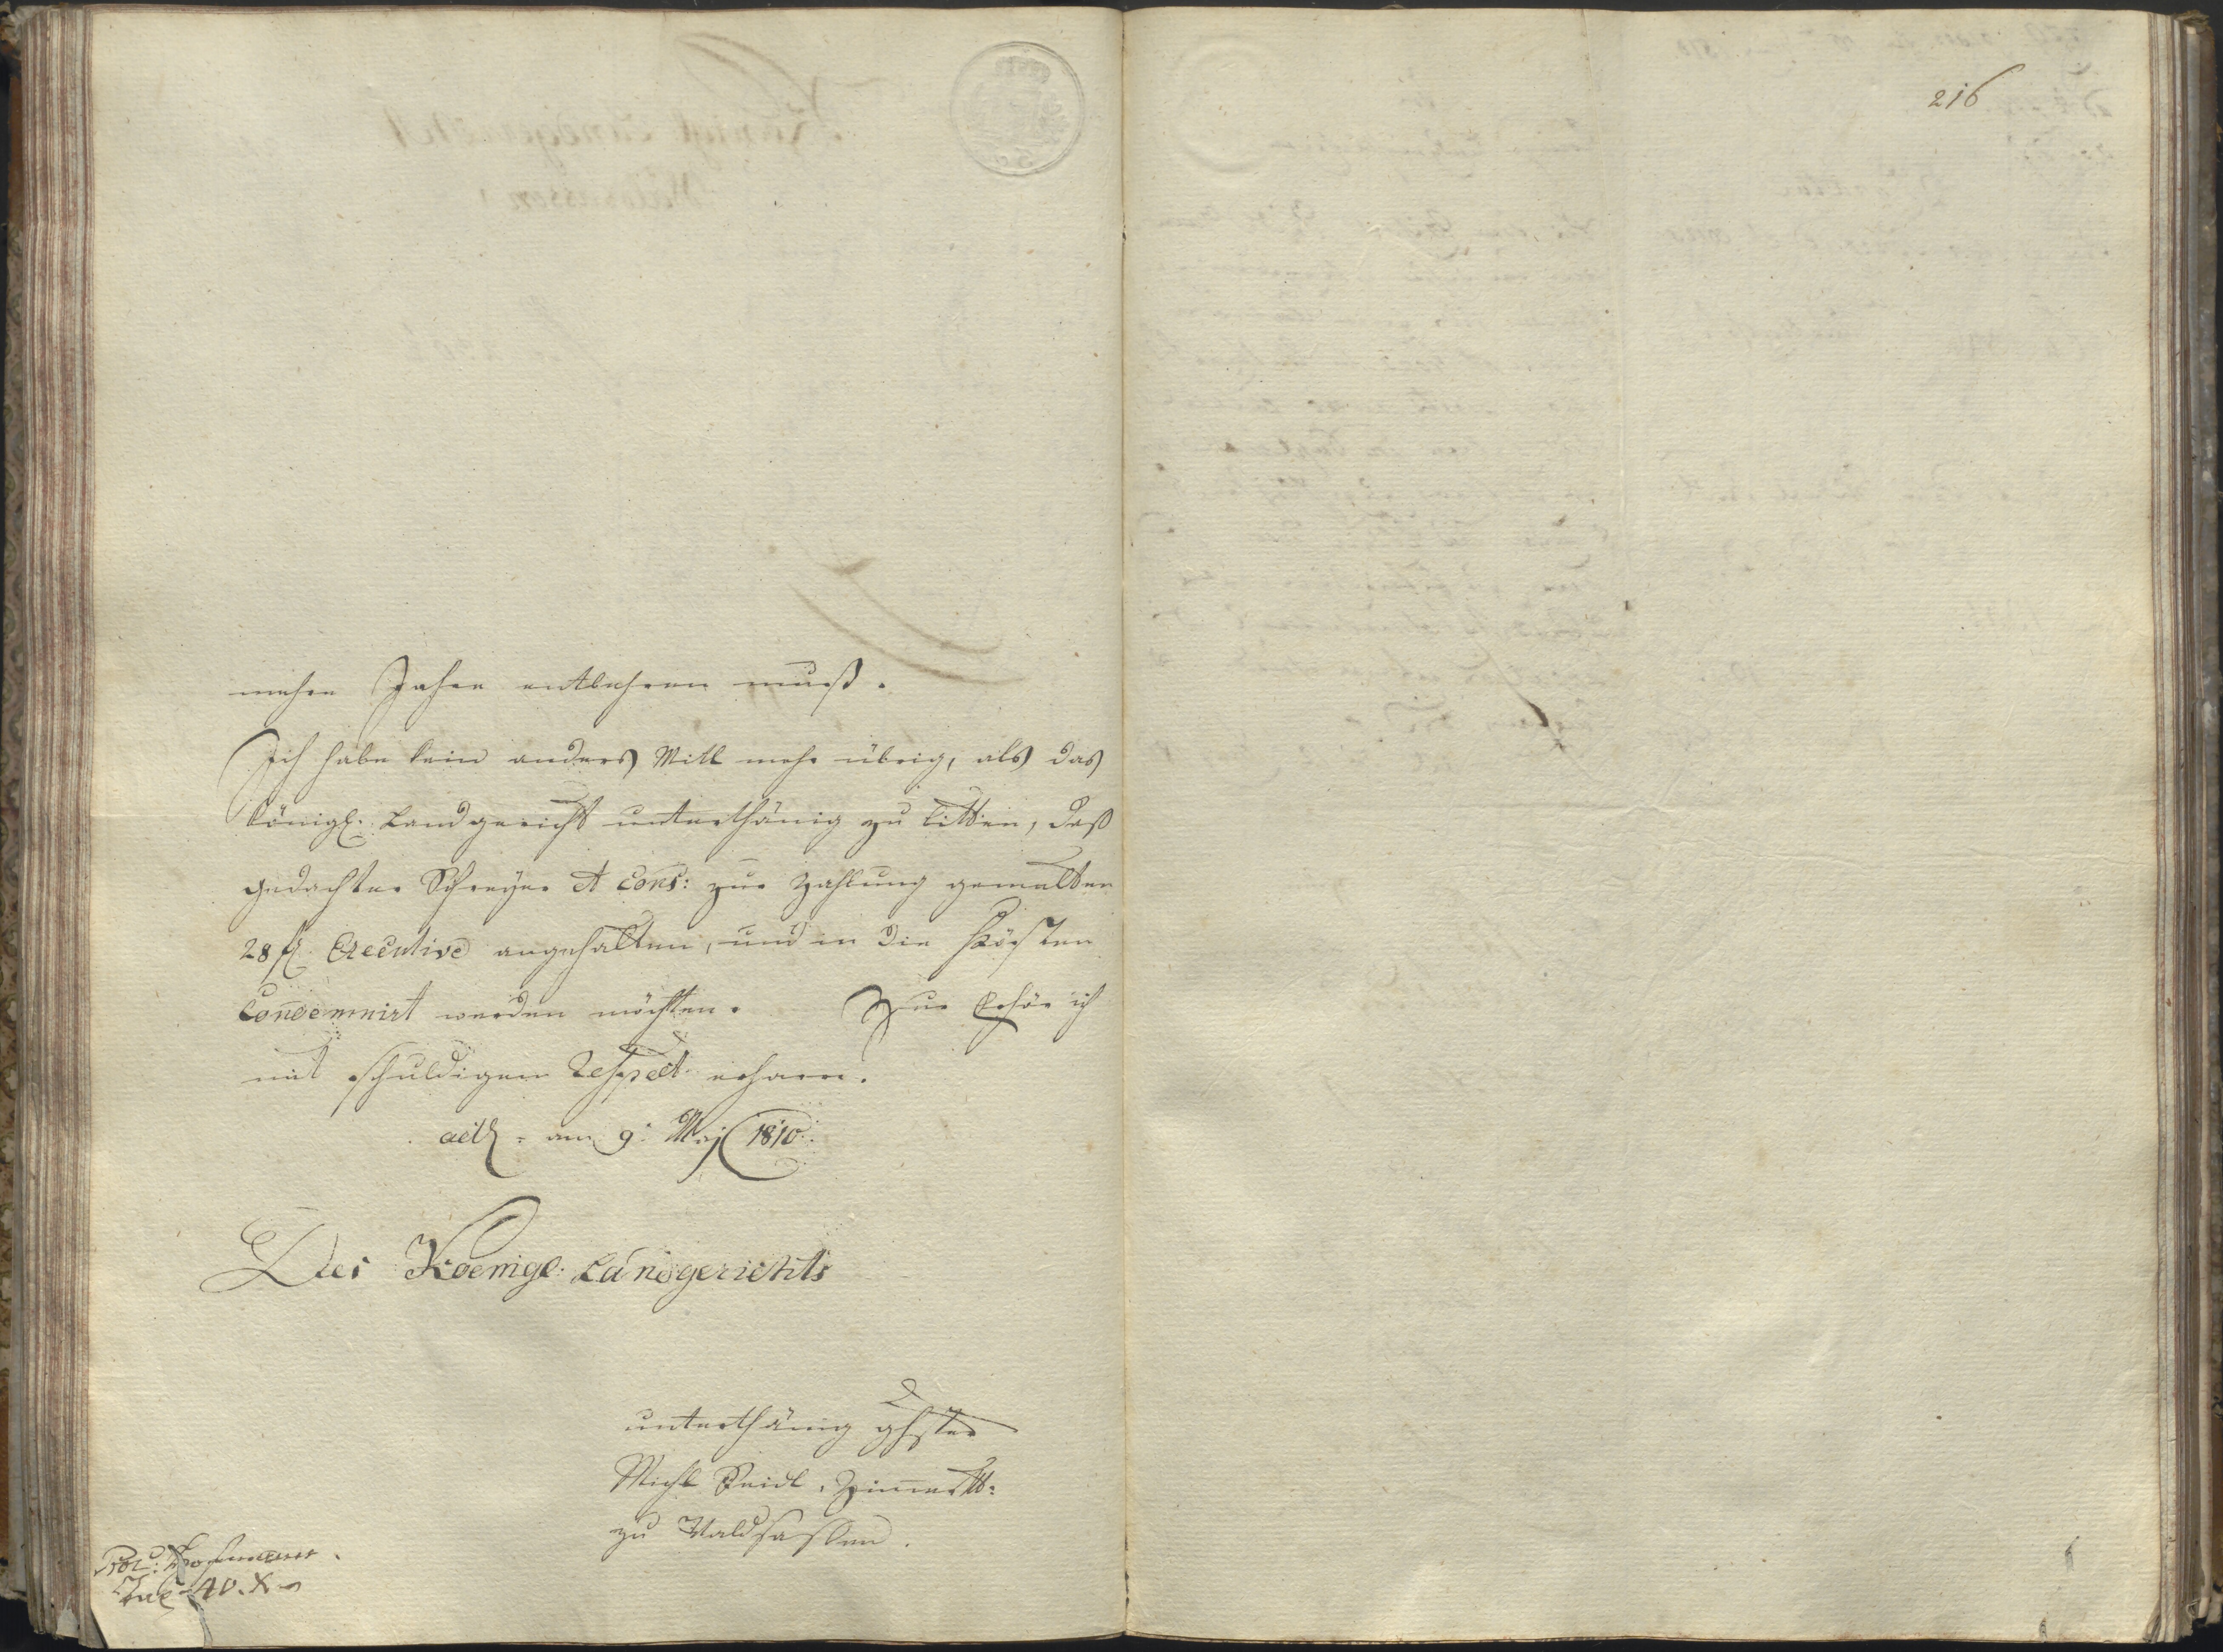 216
mehre Jahre entbehren muß.
Ich habe kein anders Mittl mehr übrig, als das
königl. Landgericht unterthänig zu bitten, daß
gedachter Schreyer et Cons: zur Zahlung gemelter
28 fl. Executive angehalten, und in die Kösten
Condemnirt werden möchten.
mit schuldigem Respect erharre.
act. am 9. Maj 1810.
Des Koenigl. Landgerichts
unterthänig ghster
Michl Seidl, Zimmer M:
zu Waldsassen.
40. X